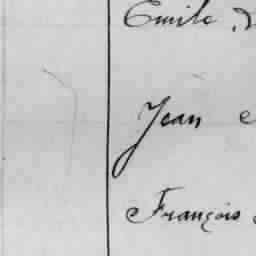 Emile
Jean
François